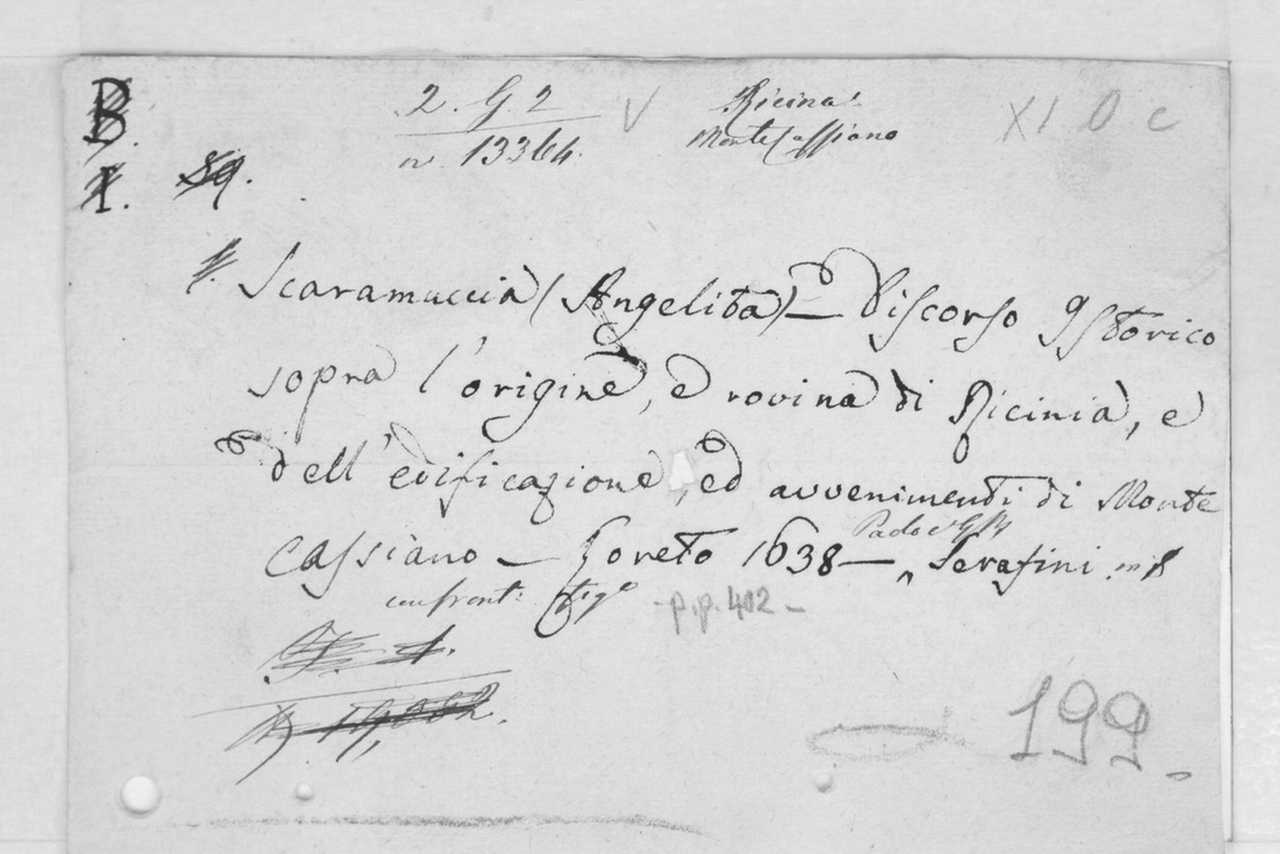 B.
2. G. 2
Ricina
XI D c
n. 13364.
Monte Cassiano
I. 89.
Scaramuccia (Angelita) — Discorso Istorico
sopra l'origine, e rovina di Ricinia, e
dell'edificazione, ed avvenimenti di Monte
Cassiano — Loreto 1638 — Paolo e G B Serafini in 8
con front. fig°
- p.p. 402 -
199.